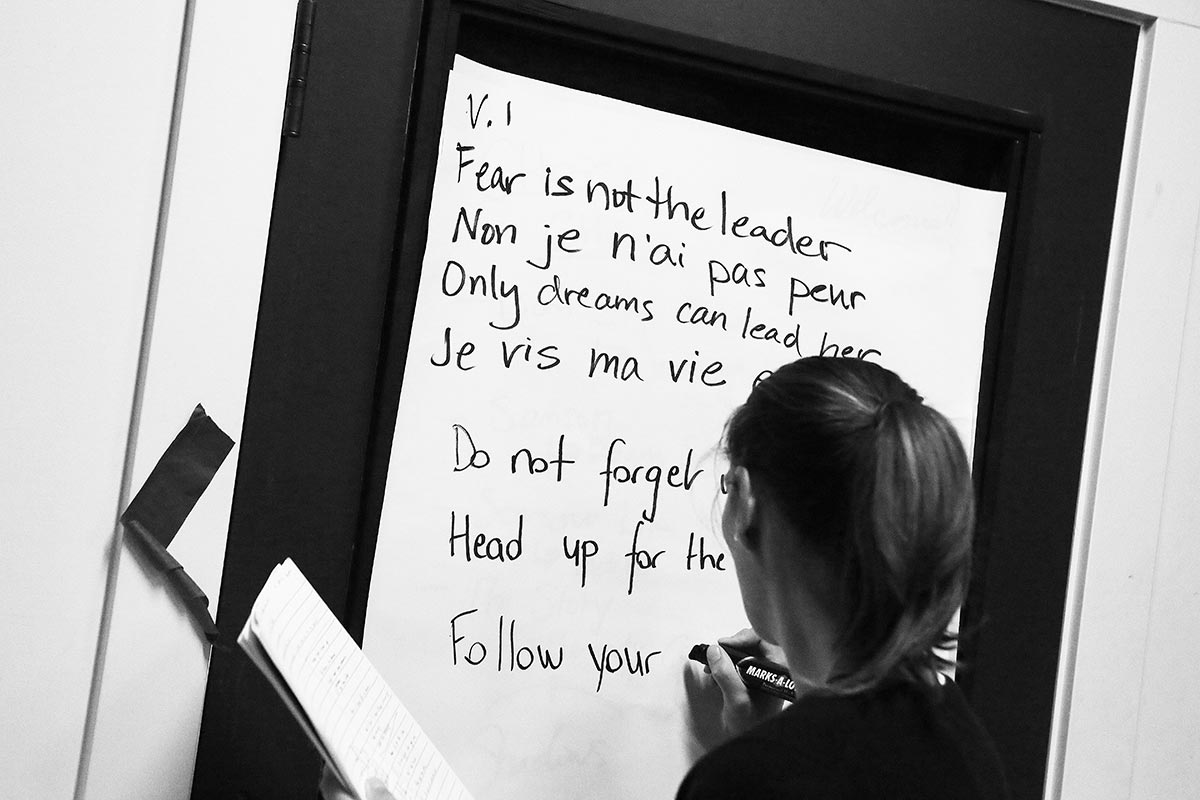 V.1
Fear is not the leader
Non je n'ai pas peur
Only dreams can lead her
Je vis ma vie
Do not forget
Head up for the
Follow your
MARKS-A-LO